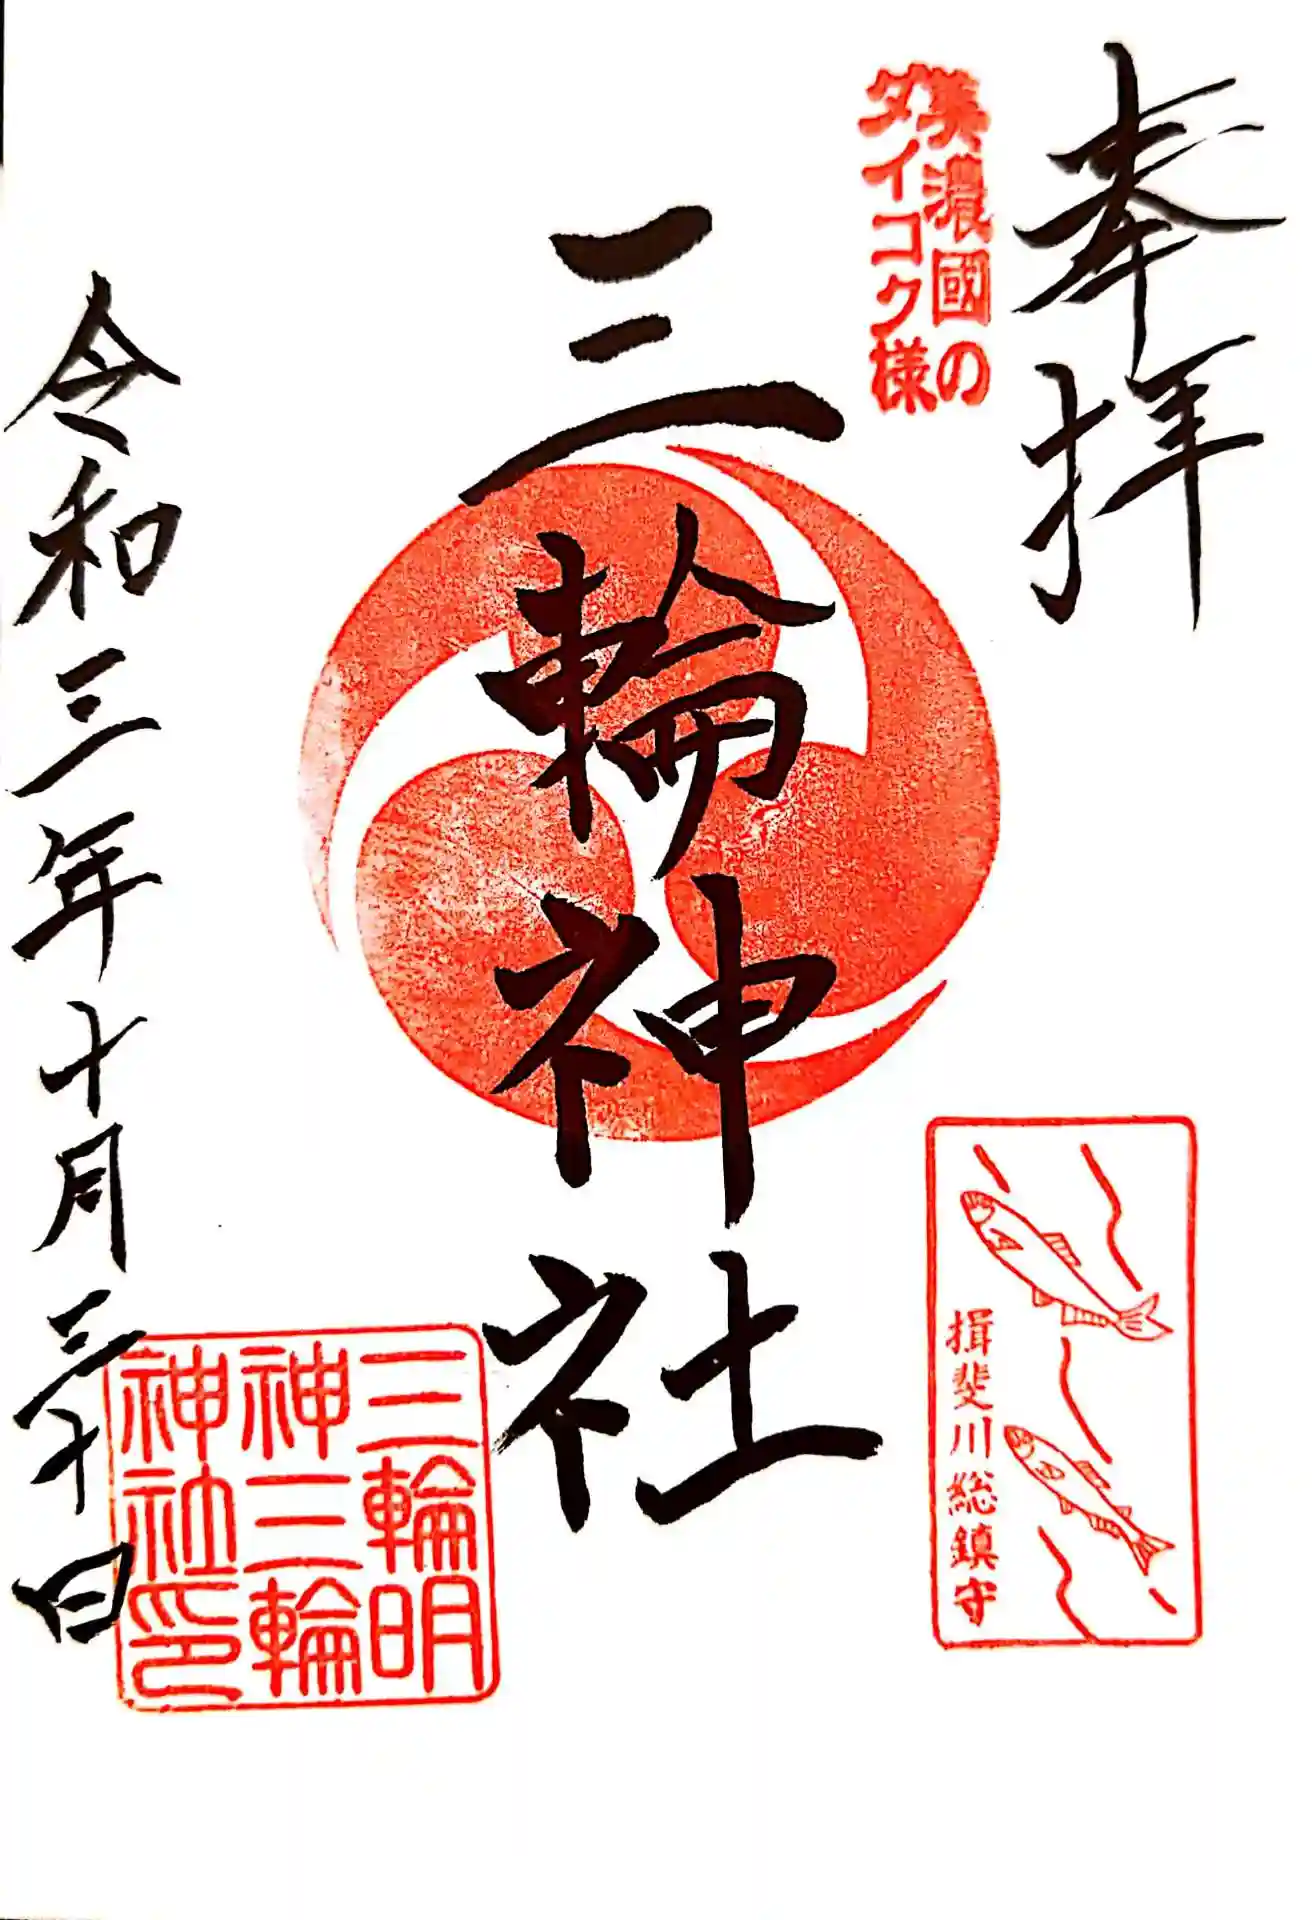 奉拝
美濃國の
ダイコク様
三輪神社
揖斐川総鎮守
令和三年十月三十日
三輪明
神三輪
神社印